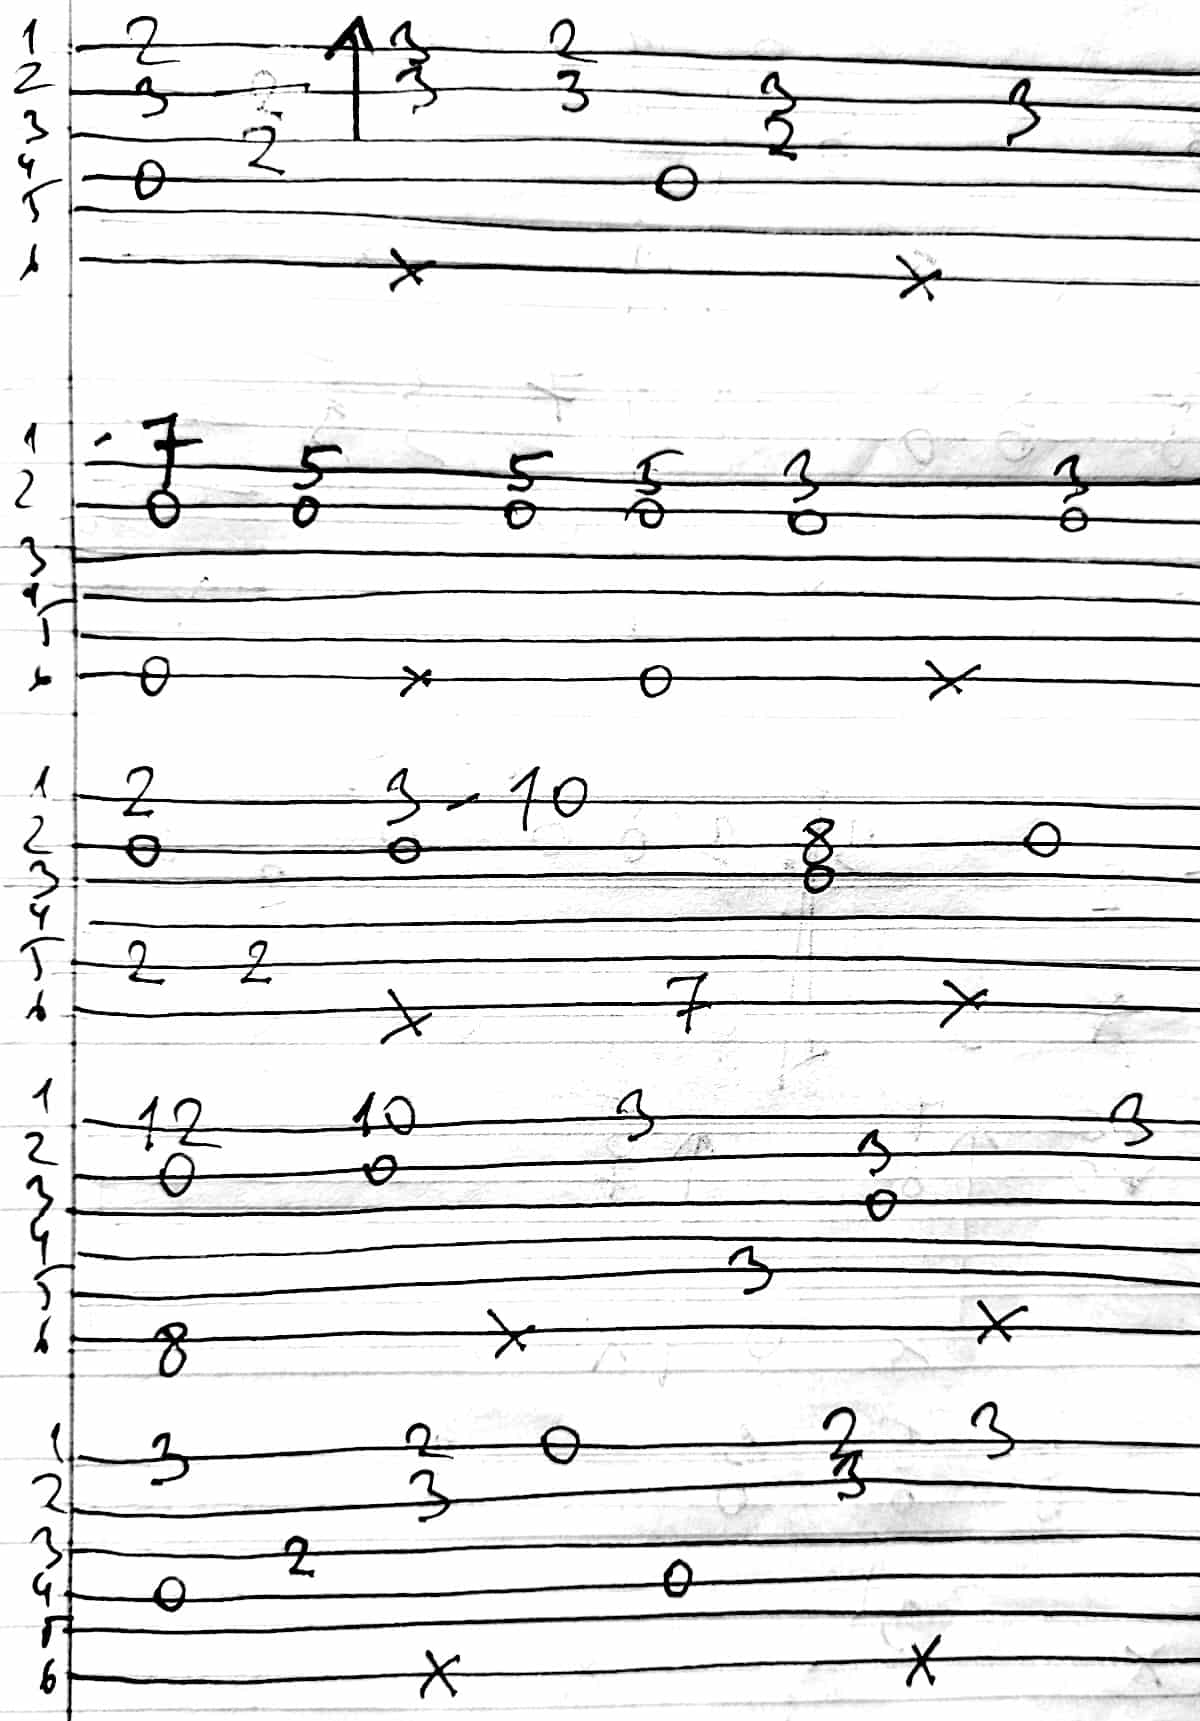 1 2 ↑ 3 2
2 3 3 3 3 3
3 2 2
4 0 0
5
6 x x
1 - 7 5 5 5 3 3
2 0 0 0 0 0 0
3
4
5
6 0 x 0 x
1 2 3 - 10
2 0 0 8 0
3 0
4
5 2 2
6 x 7 x
1 12 10 3 3
2 0 0 3
3 0
4
5 3
6 8 x x
1 3 2 0 2 3
2 3 3
3 2
4 0 0
5
6 x x